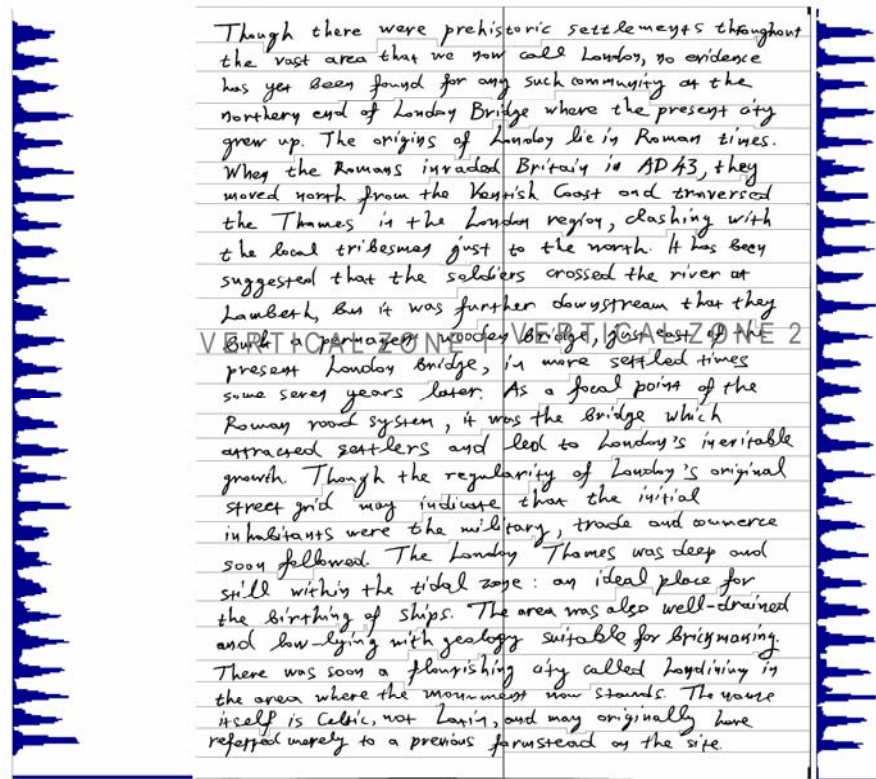 Though there were prehistoric settlements throughout
the vast area that we now call London, no evidence
has yet been found for any such community at the
northern end of London Bridge where the present city
grew up. The origins of London lie in Roman times.
When the Romans invaded Britain in AD 43, they
moved north from the Kentish Coast and traversed
the Thames in the London region, clashing with
the local tribesmen just to the north. It has been
suggested that the soldiers crossed the river at
Lambeth, but it was further downstream that they
built a permanent wooden bridge, just east of the
VERTICAL ZONE 1 VERTICAL ZONE 2
present London Bridge, in more settled times
some seven years later. As a focal point of the
Roman road system, it was the bridge which
attracted settlers and led to London's inevitable
growth. Though the regularity of London's original
street grid may indicate that the initial
inhabitants were the military, trade and commerce
soon followed. The London Thames was deep and
still within the tidal zone: an ideal place for
the birthing of ships. The area was also well-drained
and low-lying with geology suitable for brickmaking.
There was soon a flourishing city called Londinium in
the area where the monument now stands. The name
itself is Celtic, not Latin, and may originally have
referred merely to a previous farmstead on the site.